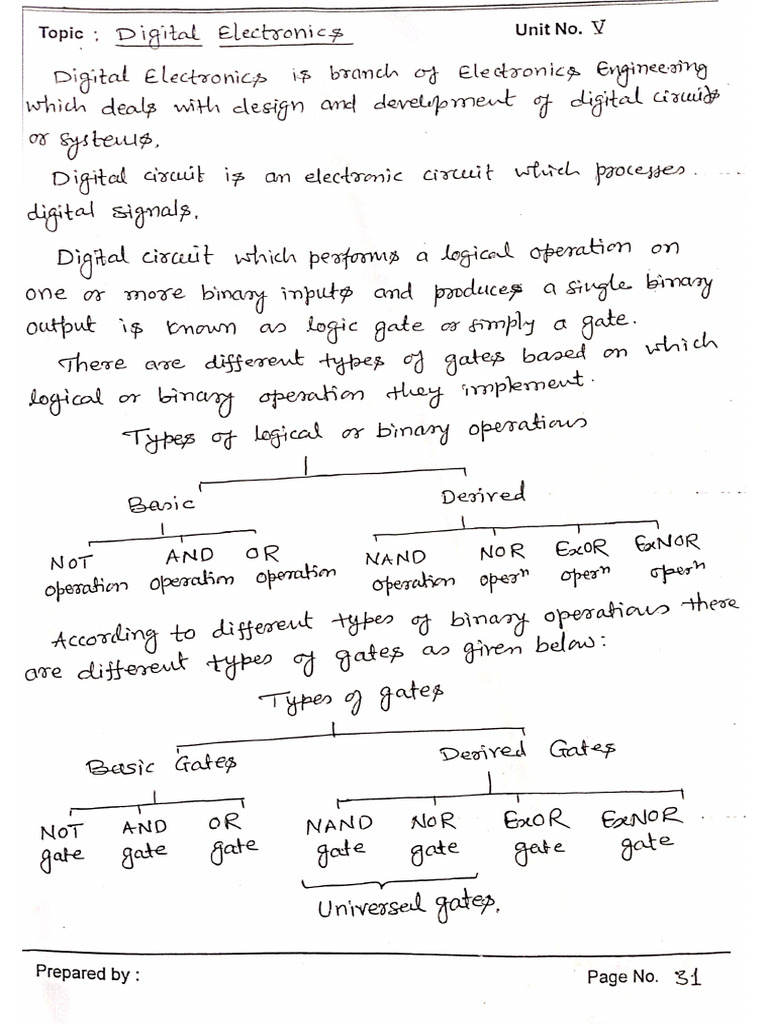 Topic : Digital Electronics Unit No. V
Digital Electronics is branch of Electronics Engineering
which deals with design and development of digital circuits
or systems.
Digital circuit is an electronic circuit which processes
digital signals.
Digital circuit which performs a logical operation on
one or more binary inputs and produces a single binary
output is known as logic gate or simply a gate.
There are different types of gates based on which
logical or binary operation they implement.
Types of logical or binary operations
Basic Derived
NOT AND OR NAND NOR ExOR ExNOR
operation operation operation operation operⁿ operⁿ operⁿ
According to different types of binary operations there
are different types of gates as given below:
Types of gates
Basic Gates Derived Gates
NOT AND OR NAND NOR ExOR ExNOR
gate gate gate gate gate gate gate
Universal gates.
Prepared by : Page No. 31